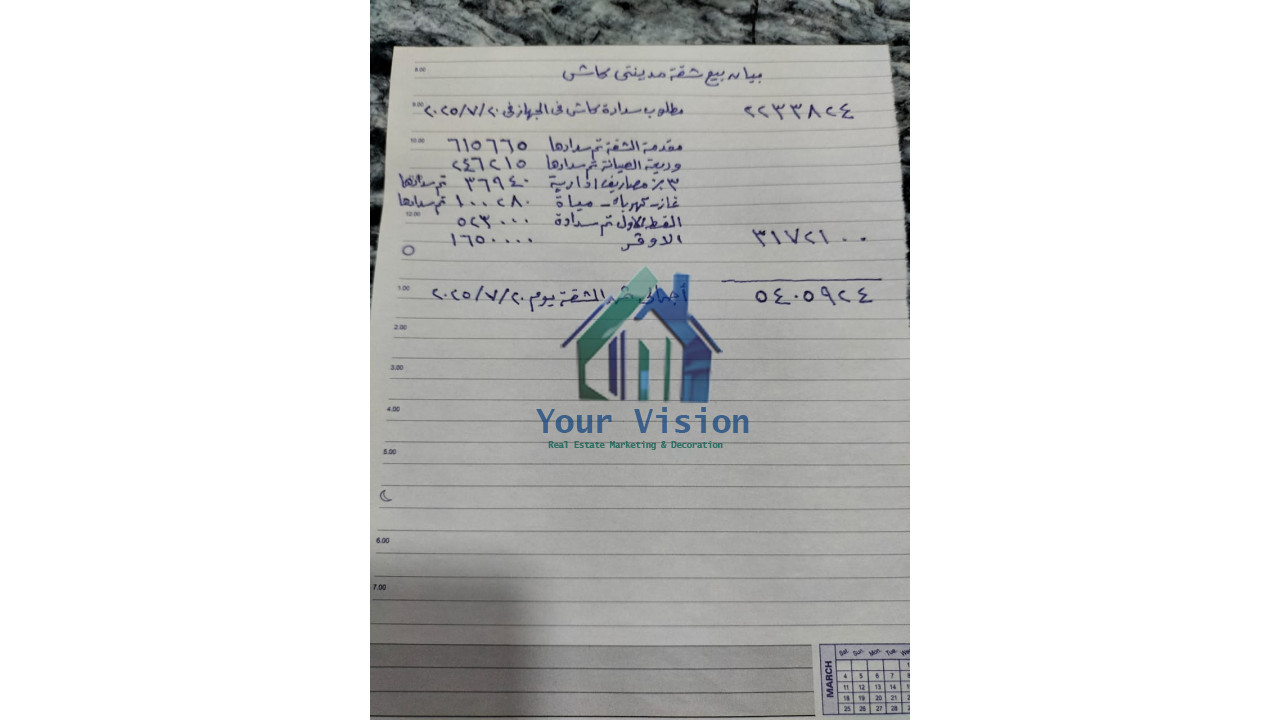 بيان بيع شقة مدينتى كاش
٢٢٣٣٨٢٤ مطلوب سدادة كاش فى الجهاز فى ٢٠٢٥/٧/٢٠
مقدمة الشقة تم سدادها ٦١٥٦٦٥
وديعة الصيانة تم سدادها ٢٤٦٢١٥
٣٪ مصاريف ادارية ٣٦٩٤٠ تم سدادها
غاز - كهرباء - مياة ١٠٠٢٨٠ تم سدادها
القسط الاول تم سدادة ٥٢٣٠٠٠
٣١٧٢١٠٠ الاوفر ١٦٥٠٠٠٠
٥٤٠٥٩٢٤ أجمالى ثمن الشقة يوم ٢٠٢٥/٧/٢٠
Your Vision
Real Estate Marketing & Decoration
8.00
9.00
10.00
12.00
1.00
2.00
3.00
4.00
5.00
6.00
7.00
MARCH
Sat. Sun. Mon. Tue.
4 5 6 7
11 12 13 14
18 19 20 21
25 26 27 28